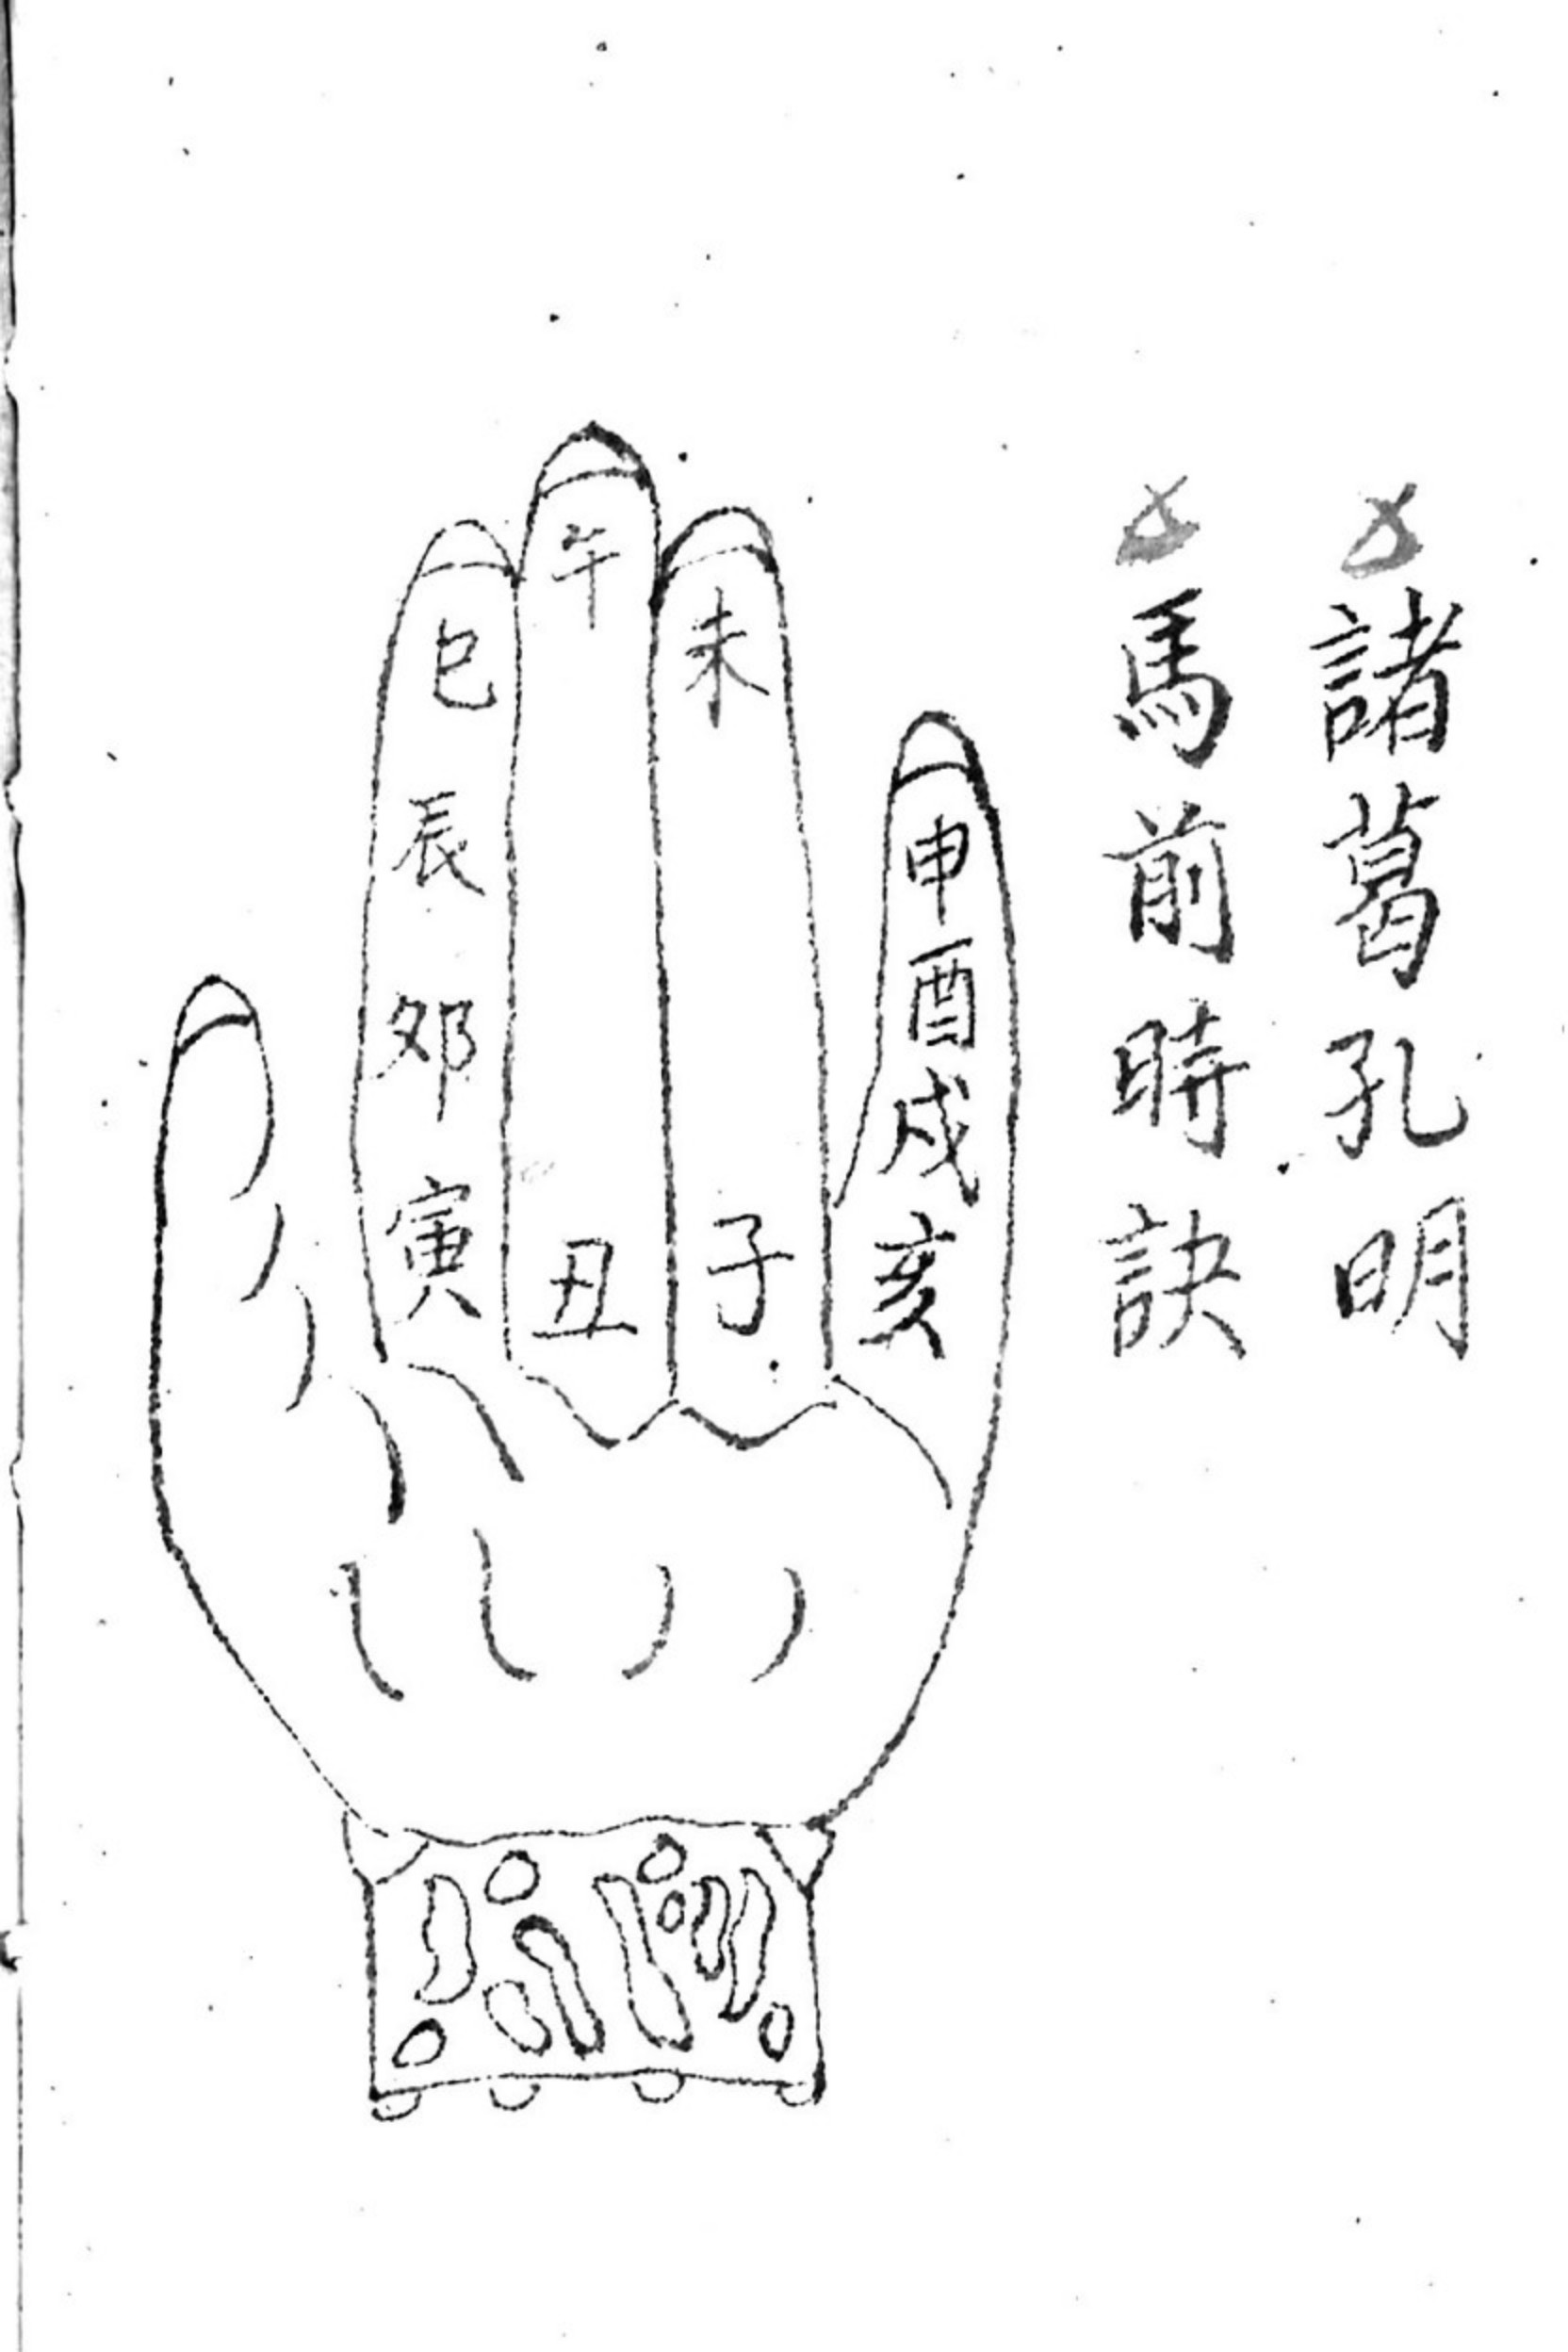 諸葛孔明
馬前時訣
巳辰卯寅
午丑
未子
申酉戌亥